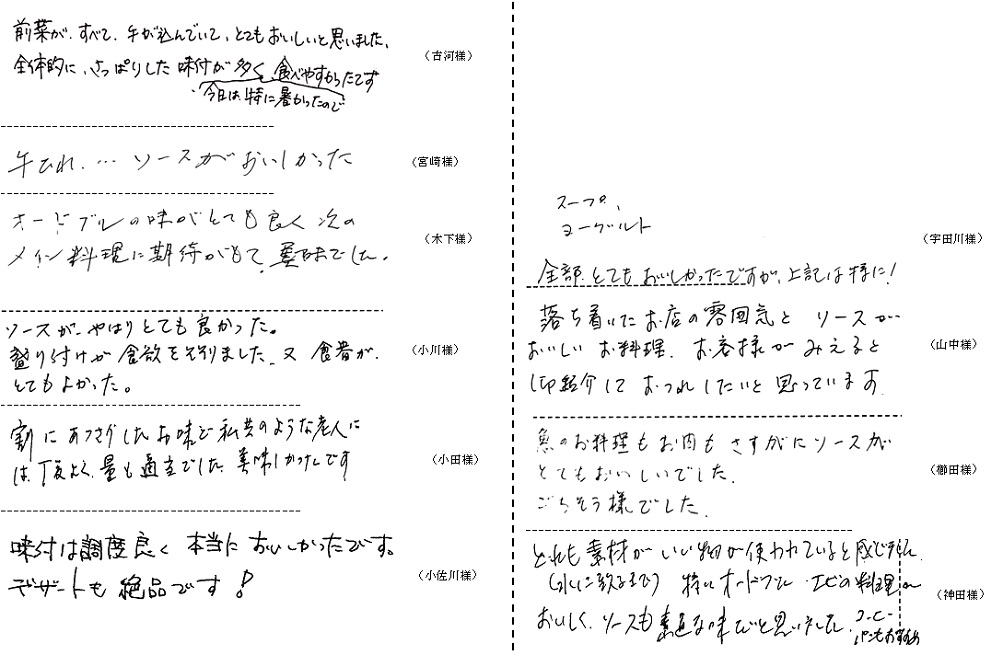 前菜が、すべて、手が込んでいて、とてもおいしいと思いました。
全体的に、さっぱりした味付が多く、食べやすかったです
今日は、特に暑かったので
(古河様)
牛ひれ、… ソースがおいしかった
(宮崎様)
オードブルの味がとても良く次の
メイン料理に期待がもて、美味でした。
(木下様)
ソースが、やはりとても良かった。
盛り付けが食欲をそそりました、又 食器が、
とてもよかった。
(小川様)
割にあっさりしたお味で私共のような老人に
は、丁度よく、量も適立でした 美味しかったです
(小田様)
味付は調度良く 本当に おいしかったです。
デザートも 絶品です!
(小佐川様)
スープ、
ヨーグルト
(宇田川様)
全部、とてもおいしかったですが、上記は特に!
落ち着いたお店の雰囲気と ソースが
おいしい お料理、お客様が みえると
ご紹介して おつれしたいと 思っています
(山中様)
魚のお料理もお肉も さすがにソースが
とてもおいしいでした。
ごちそう様でした。
(櫛田様)
とれも素材がいい物が使われていると感じました
(水に致るまで) 特に オードブル・エビの料理が
おいしく、ソースも 素適な味だと思いました。
コーヒー
パンもおすすめ
(神田様)